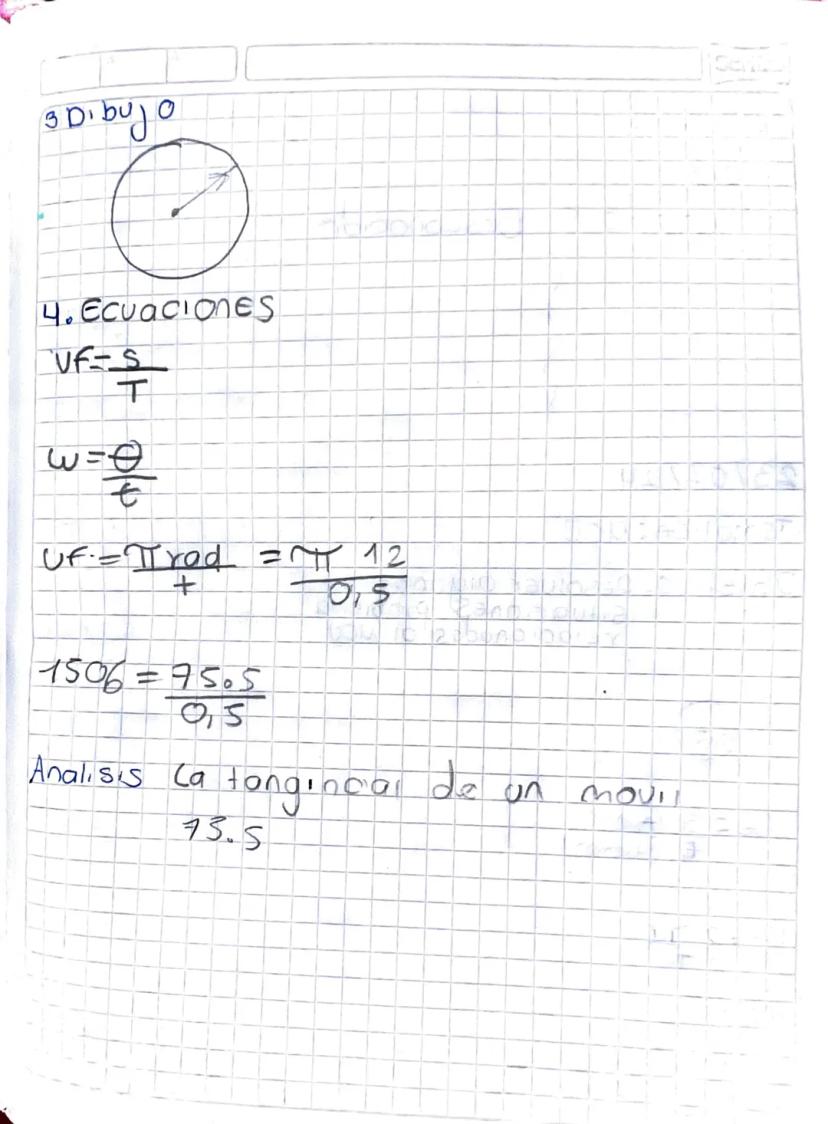 3 Dibujo
4. Ecuaciones
Vf = s/T
ω = θ/t
Vf = π rad/t = π 12/0,5
1506 = 75.5/0,5
Analisis la tangincial de un movil
75.5